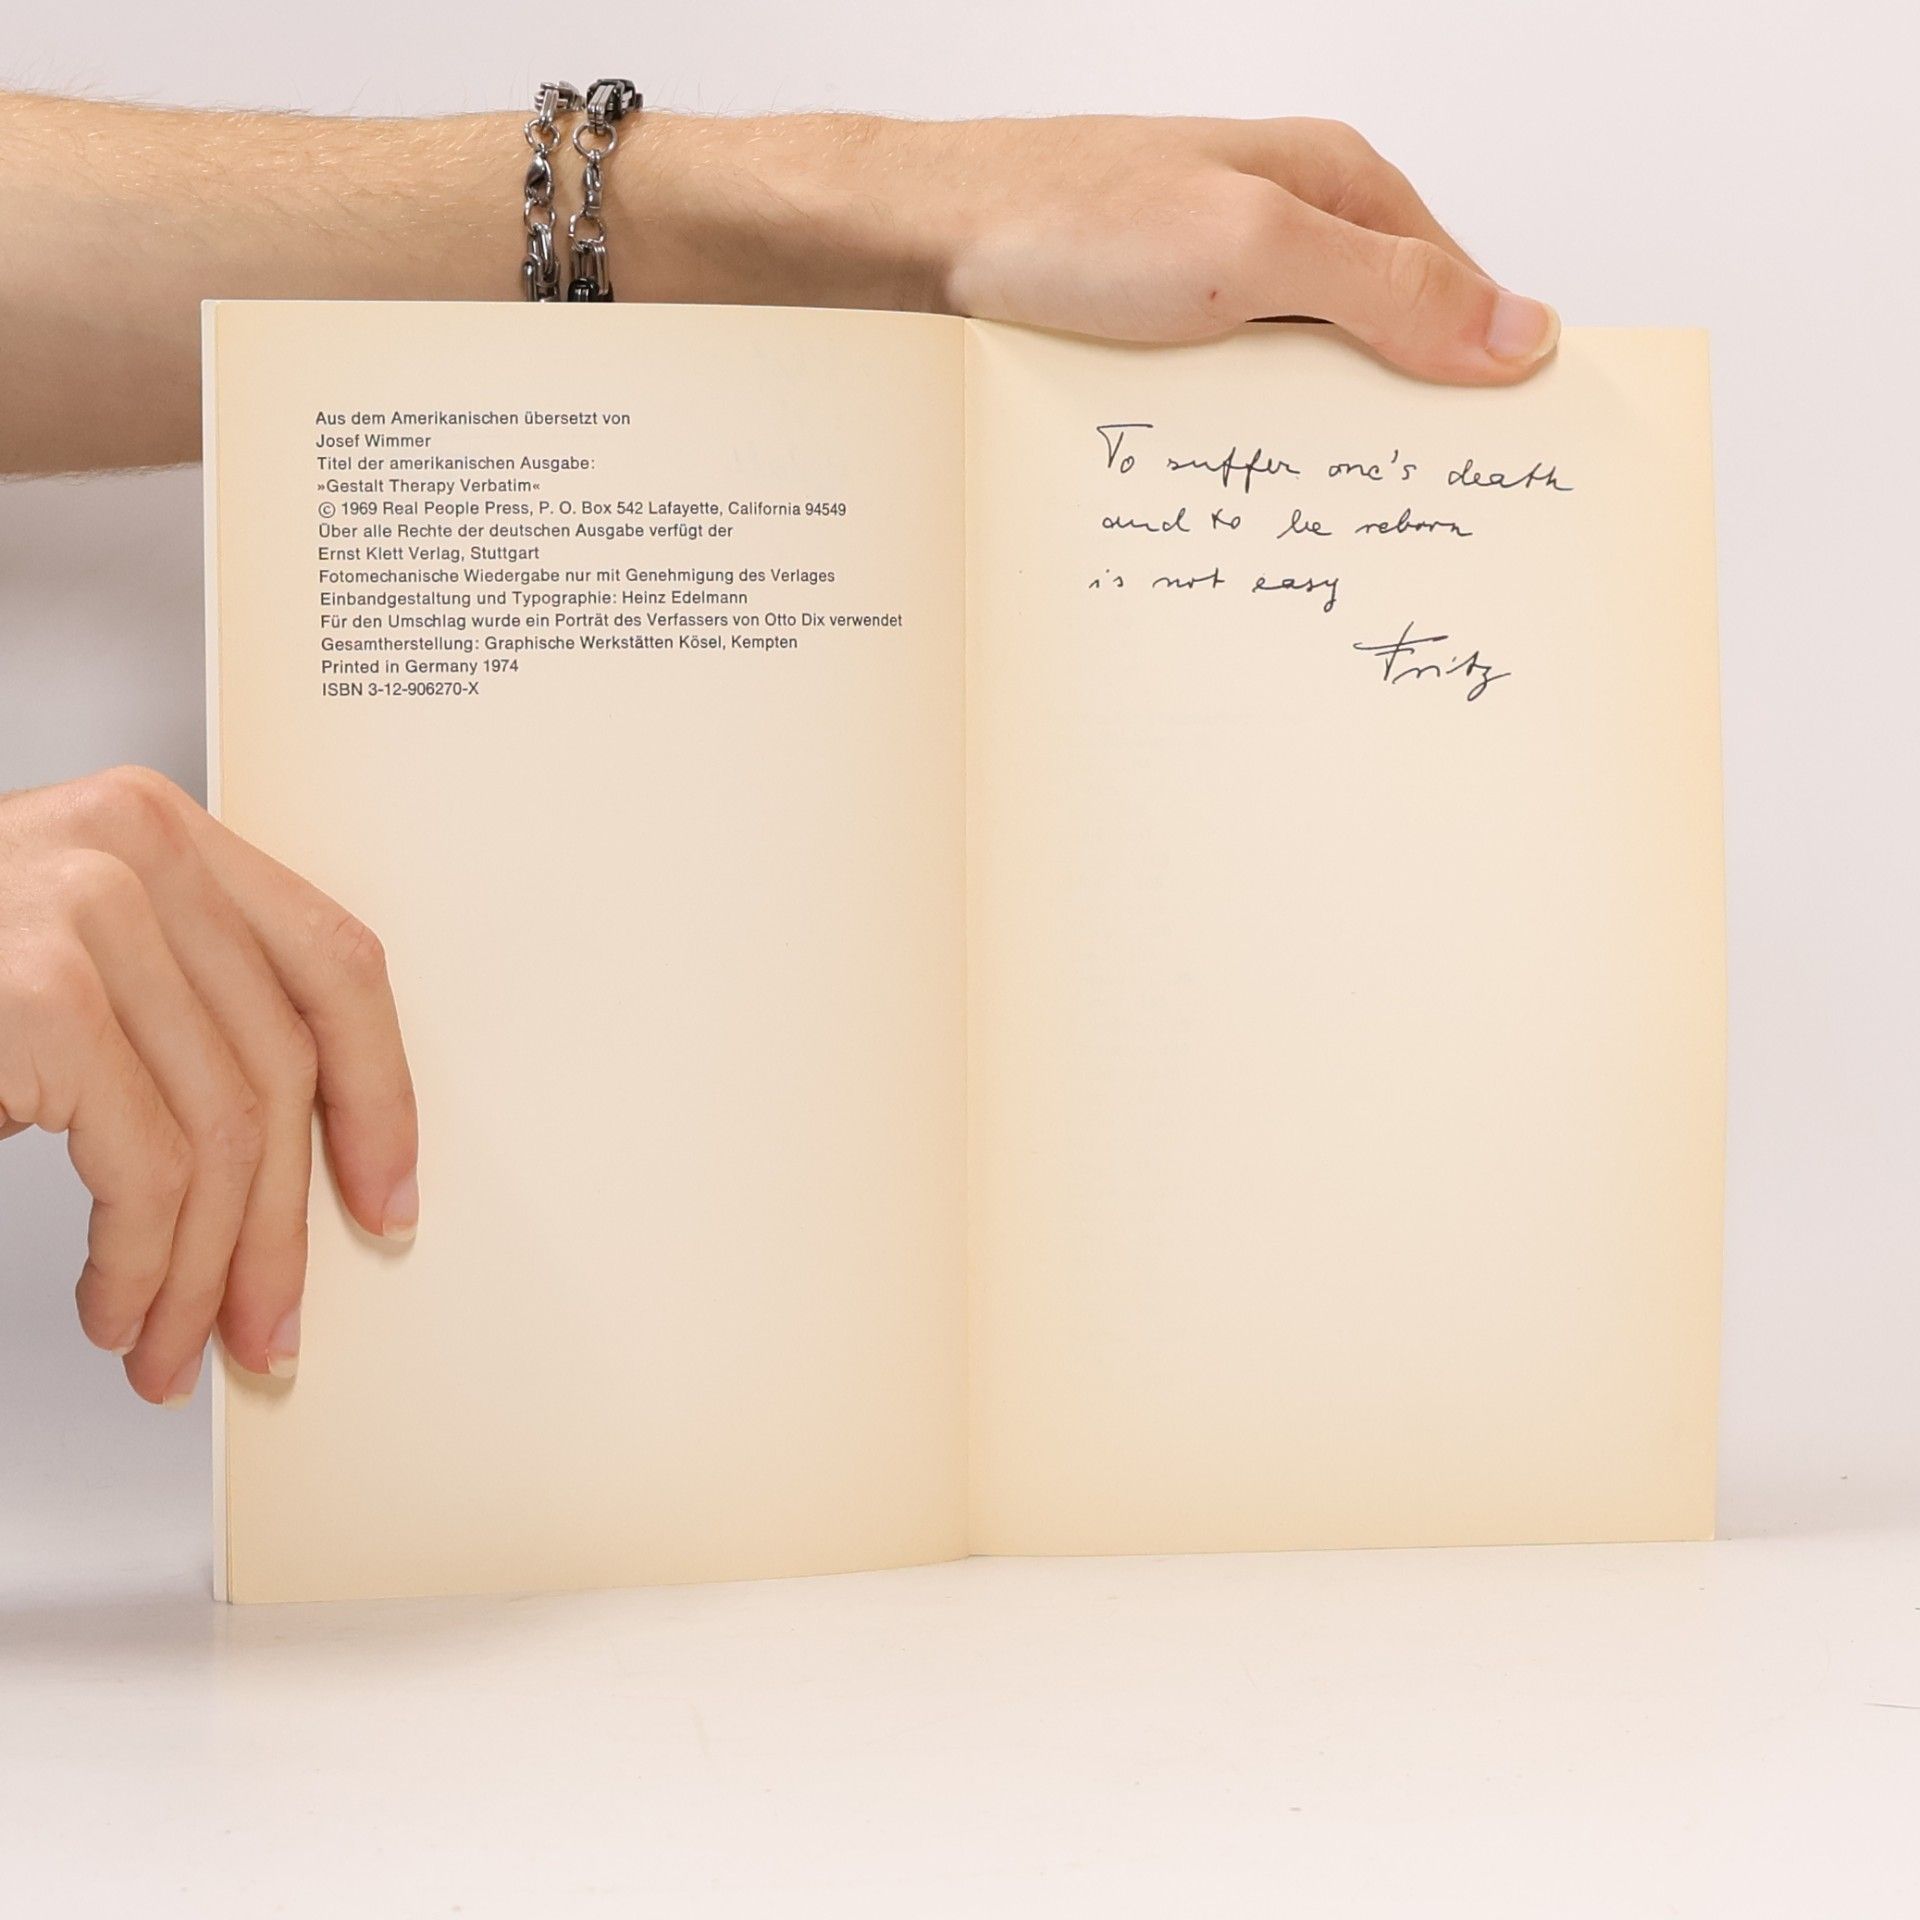 Aus dem Amerikanischen übersetzt von
Josef Wimmer
Titel der amerikanischen Ausgabe:
»Gestalt Therapy Verbatim«
© 1969 Real People Press, P. O. Box 542 Lafayette, California 94549
Über alle Rechte der deutschen Ausgabe verfügt der
Ernst Klett Verlag, Stuttgart
Fotomechanische Wiedergabe nur mit Genehmigung des Verlages
Einbandgestaltung und Typographie: Heinz Edelmann
Für den Umschlag wurde ein Porträt des Verfassers von Otto Dix verwendet
Gesamtherstellung: Graphische Werkstätten Kösel, Kempten
Printed in Germany 1974
ISBN 3-12-906270-X
To suffer one's death
and to be reborn
is not easy
Fritz